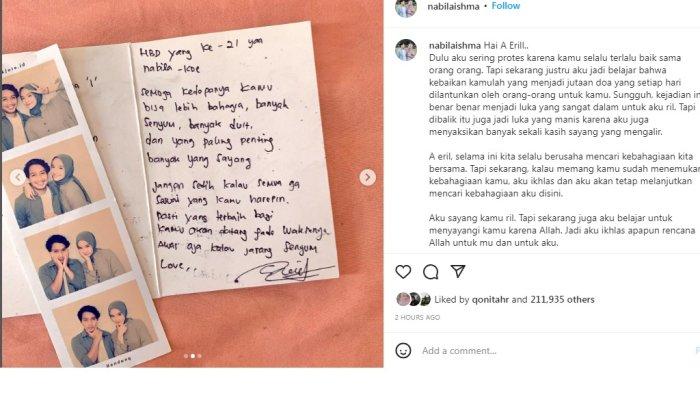 HBD yang ke-21 yaa
nabila-koe
semoga kedepanya kamu
bisa lebih bahagia, banyak
senyum, banyak duit,
dan yang paling penting
banyak yang sayang
jangan sedih kalau semua ga
sesuai yang kamu harepin.
pasti yang terbaik bagi
kamu akan datang pada waktunya
awas aja kalau jarang senyum
Love,,
Bandung
nabilaishma • Follow
nabilaishma Hai A Erill..
Dulu aku sering protes karena kamu selalu terlalu baik sama
orang orang. Tapi sekarang justru aku jadi belajar bahwa
kebaikan kamulah yang menjadi jutaan doa yang setiap hari
dilantunkan oleh orang-orang untuk kamu. Sungguh, kejadian in
benar benar menjadi luka yang sangat dalam untuk aku ril. Tapi
dibalik itu juga jadi luka yang manis karena aku juga
menyaksikan banyak sekali kasih sayang yang mengalir.
A eril, selama ini kita selalu berusaha mencari kebahagiaan kita
bersama. Tapi sekarang, kalau memang kamu sudah menemukan
kebahagiaan kamu, aku ikhlas dan aku akan tetap melanjutkan
mencari kebahagiaan aku disini.
Aku sayang kamu ril. Tapi sekarang juga aku belajar untuk
menyayangi kamu karena Allah. Jadi aku ikhlas apapun rencana
Allah untuk mu dan untuk aku.
Liked by qonitahr and 211,935 others
2 HOURS AGO
Add a comment...
Po